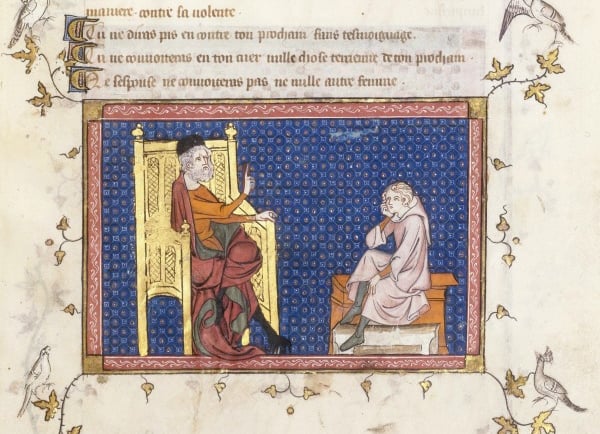 maniere contre sa volente ·
Tu ne diras pis en contre ton prochain faus tesmoignage.
Tu ne couvoiteras en ton cuer nulle chose terrienne de ton prochain ·
Ne sespouse ne couvoiteras pas ne nulle autre femme ·